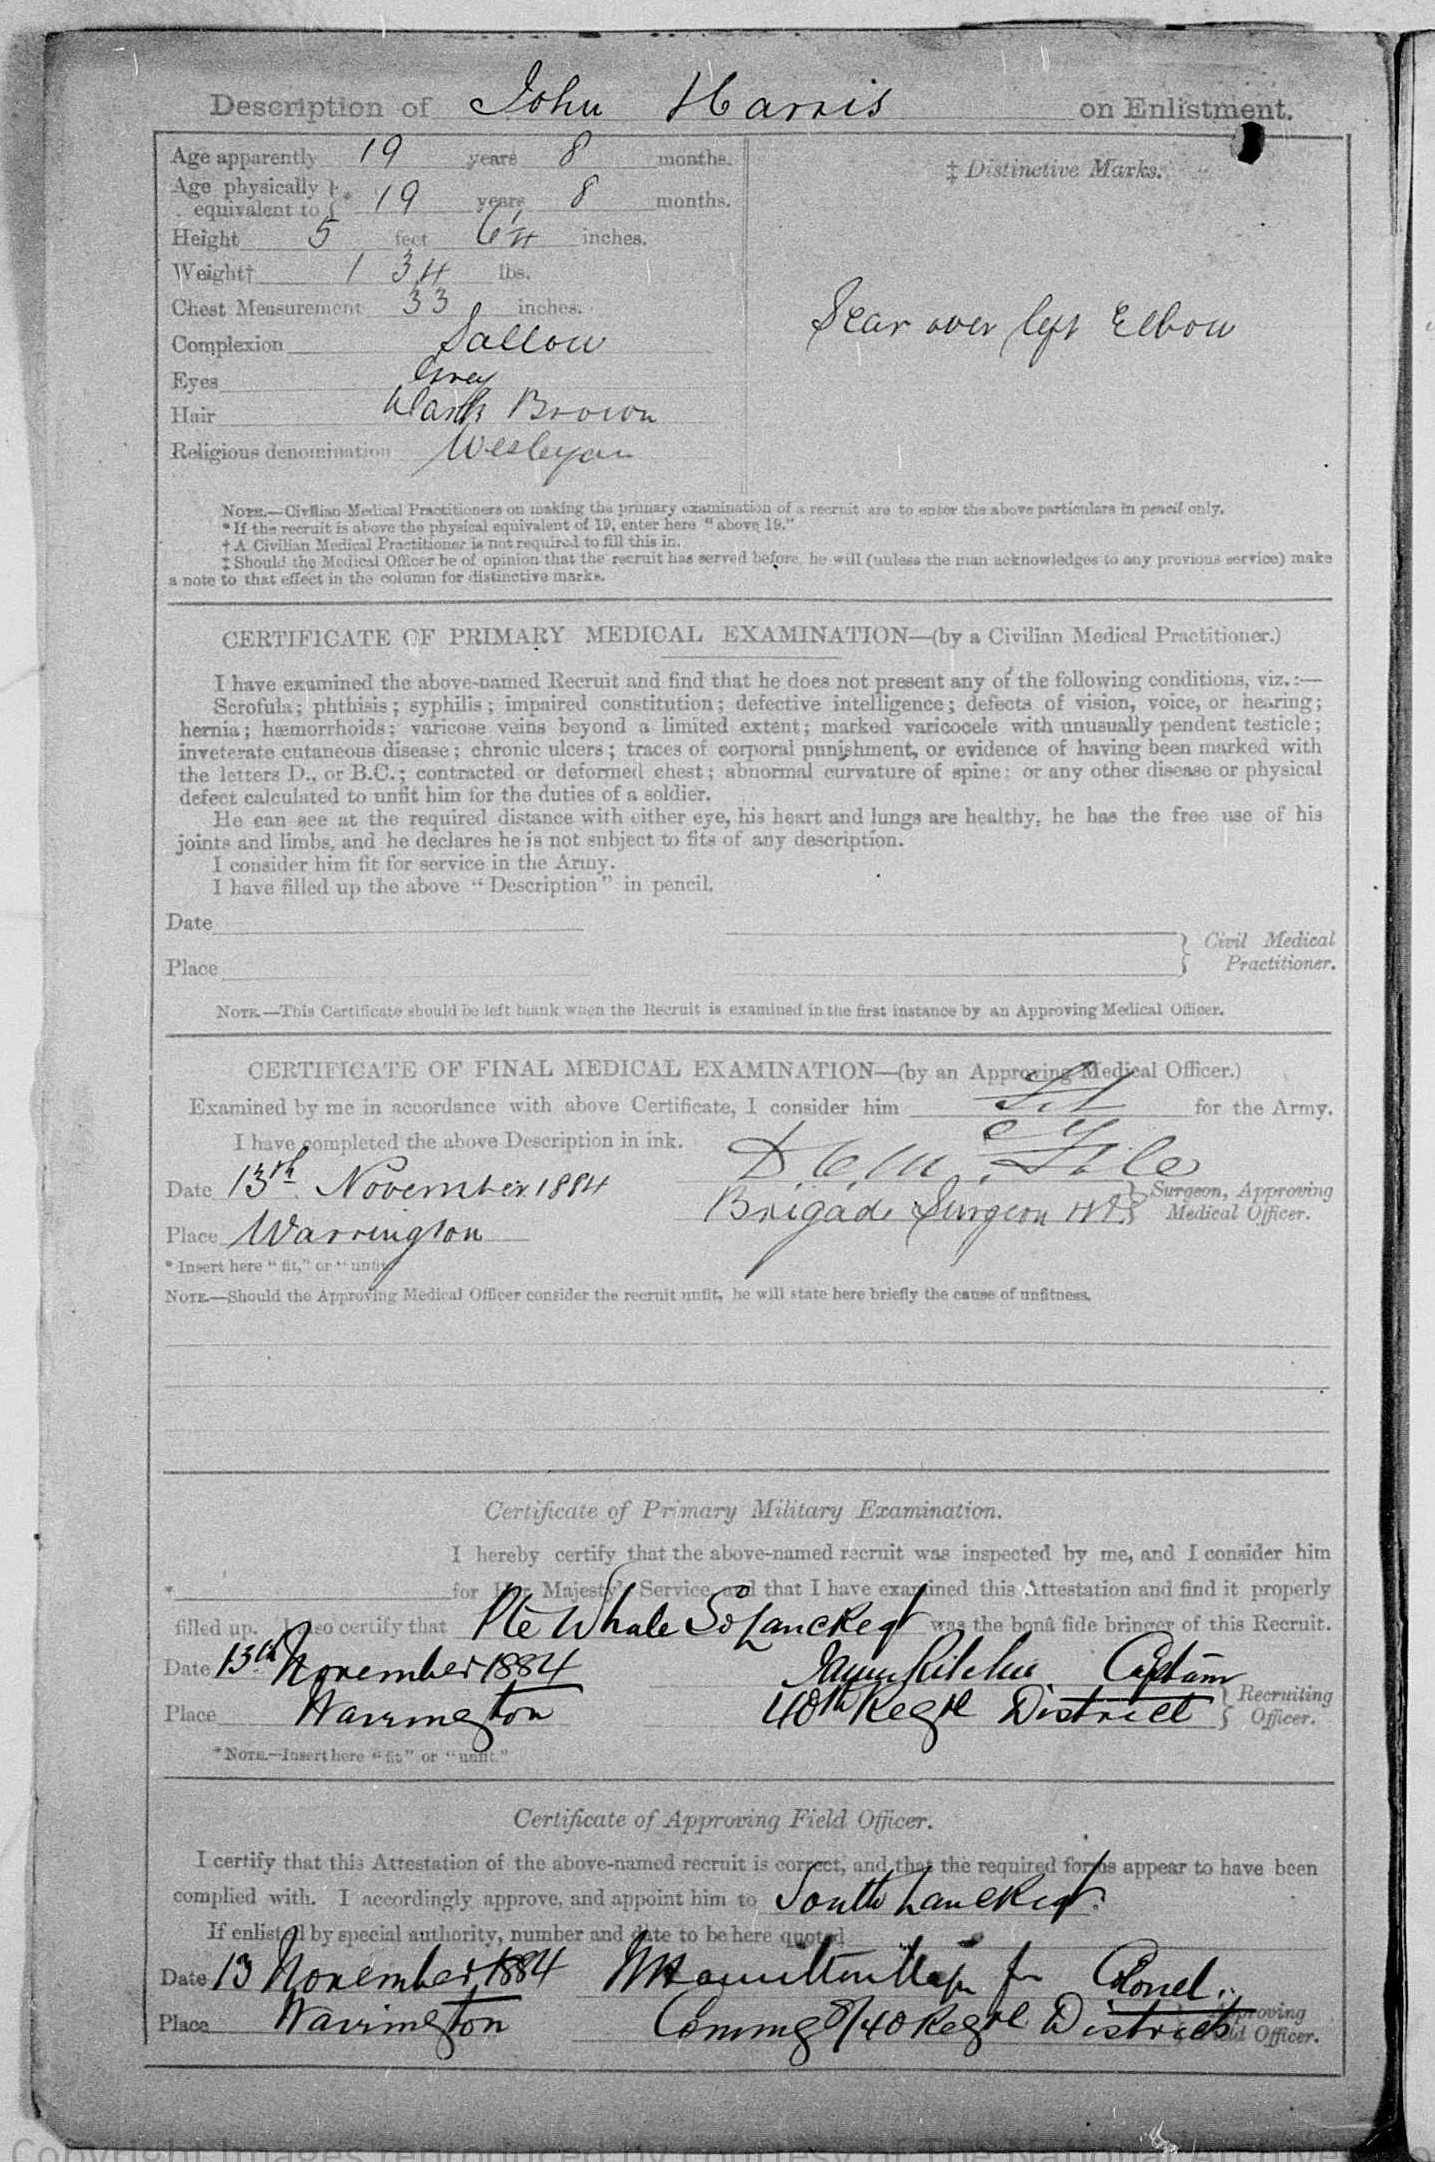 Description of John Harris on Enlistment.
Age apparently 19 years 8 months.
‡ Distinctive Marks.
Age physically equivalent to * 19 years 8 months.
Height 5 feet 6¼ inches.
Weight† 134 lbs.
Chest Measurement 33 inches.
Scar over left Elbow
Complexion Sallow
Eyes Grey
Hair Dark Brown
Religious denomination Wesleyan
NOTE.—Civilian Medical Practitioners on making the primary examination of a recruit are to enter the above particulars in pencil only.
* If the recruit is above the physical equivalent of 19, enter here "above 19."
† A Civilian Medical Practitioner is not required to fill this in.
‡ Should the Medical Officer be of opinion that the recruit has served before, he will (unless the man acknowledges to any previous service) make
a note to that effect in the column for distinctive marks.
CERTIFICATE OF PRIMARY MEDICAL EXAMINATION—(by a Civilian Medical Practitioner.)
I have examined the above-named Recruit and find that he does not present any of the following conditions, viz.:—
Scrofula; phthisis; syphilis; impaired constitution; defective intelligence; defects of vision, voice, or hearing;
hernia; hæmorrhoids; varicose veins beyond a limited extent; marked varicocele with unusually pendent testicle;
inveterate cutaneous disease; chronic ulcers; traces of corporal punishment, or evidence of having been marked with
the letters D., or B.C.; contracted or deformed chest; abnormal curvature of spine; or any other disease or physical
defect calculated to unfit him for the duties of a soldier.
He can see at the required distance with either eye, his heart and lungs are healthy, he has the free use of his
joints and limbs, and he declares he is not subject to fits of any description.
I consider him fit for service in the Army.
I have filled up the above "Description" in pencil.
Date
Civil Medical Practitioner.
Place
NOTE.—This Certificate should be left blank when the Recruit is examined in the first instance by an Approving Medical Officer.
CERTIFICATE OF FINAL MEDICAL EXAMINATION—(by an Approving Medical Officer.)
Examined by me in accordance with above Certificate, I consider him Fit for the Army.
I have completed the above Description in ink.
Date 13th November 1884
Brigade Surgeon
Surgeon, Approving Medical Officer.
Place Warrington
* Insert here "fit," or "unfit"
NOTE.—Should the Approving Medical Officer consider the recruit unfit, he will state here briefly the cause of unfitness.
Certificate of Primary Military Examination.
I hereby certify that the above-named recruit was inspected by me, and I consider him
* for Her Majesty's Service and that I have examined this Attestation and find it properly
filled up. I also certify that Pte Whale So Lanc Regt was the bonâ fide bringer of this Recruit.
Date 13th November 1884 Captain
Place Warrington 40th Regtl District Recruiting Officer.
* NOTE.—Insert here "fit" or "unfit."
Certificate of Approving Field Officer.
I certify that this Attestation of the above-named recruit is correct, and that the required forms appear to have been
complied with. I accordingly approve, and appoint him to South Lanc Regt.
If enlisted by special authority, number and date to be here quoted
Date 13 November 1884 for Colonel.
Place Warrington Commg 8/40 Regtl District Approving Field Officer.
Copyright Images reproduced by courtesy of The National Archives